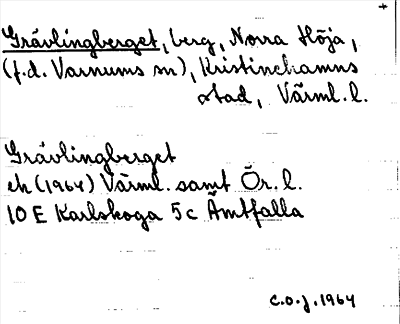 +
Grävlingberget, berg, Norra Höja,
(f.d. Varnums sn), Kristinehamns
stad, Värml. l.
Grävlingberget
ek (1964) Värml. samt Ör. l.
10 E Karlskoga 5c Ämtfalla
C.O.J. 1964